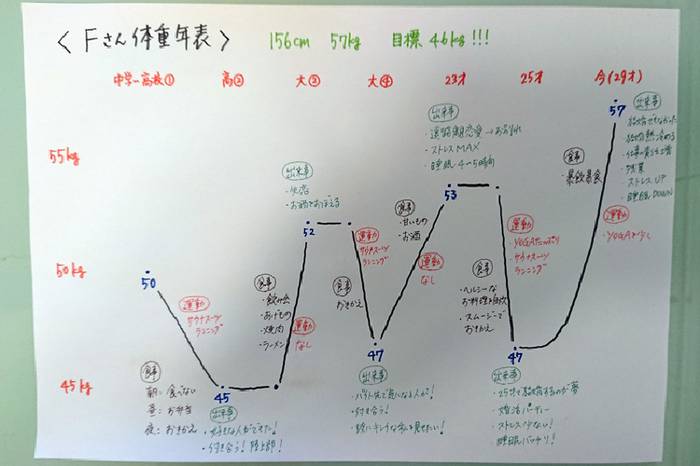 〈 Fさん 体重年表 〉
156cm 57kg 目標 46kg!!!
中学〜高校① 高② 大③ 大④ 23才 25才 今(29才)
55kg
50kg
45kg
50
運動
サウナスーツ
ランニング
食事
朝：食べない
昼：お弁当
夜：おきかえ
45
出来事
・好きな人ができた！
・付き合う！陸上部！
食事
・飲み会
・あげもの
・焼肉
・ラーメン
運動
なし
出来事
・失恋
・お酒でおぼえる
52
運動
サウナスーツ
ランニング
食事
おきかえ
47
出来事
・バイト先で気になる人が！
・付き合う！
・彼にキレイな私を見せたい！
食事
・甘いもの
・お酒
運動
なし
出来事
・遠距離恋愛→お別れ
・ストレスMAX
・睡眠4〜5時間
53
運動
・YOGA
サウナスーツ
ランニング
食事
・ヘルシーな
お料理
・スムージーで
おきかえ
47
出来事
・25才で結婚するのが夢
・婚活パーティー
・ストレス少ない！
・睡眠バッチリ！
食事
暴飲暴食
57
出来事
・結婚できなかった
・結婚熱冷める
・残業
ストレスUP
・睡眠DOWN
運動
・YOGA